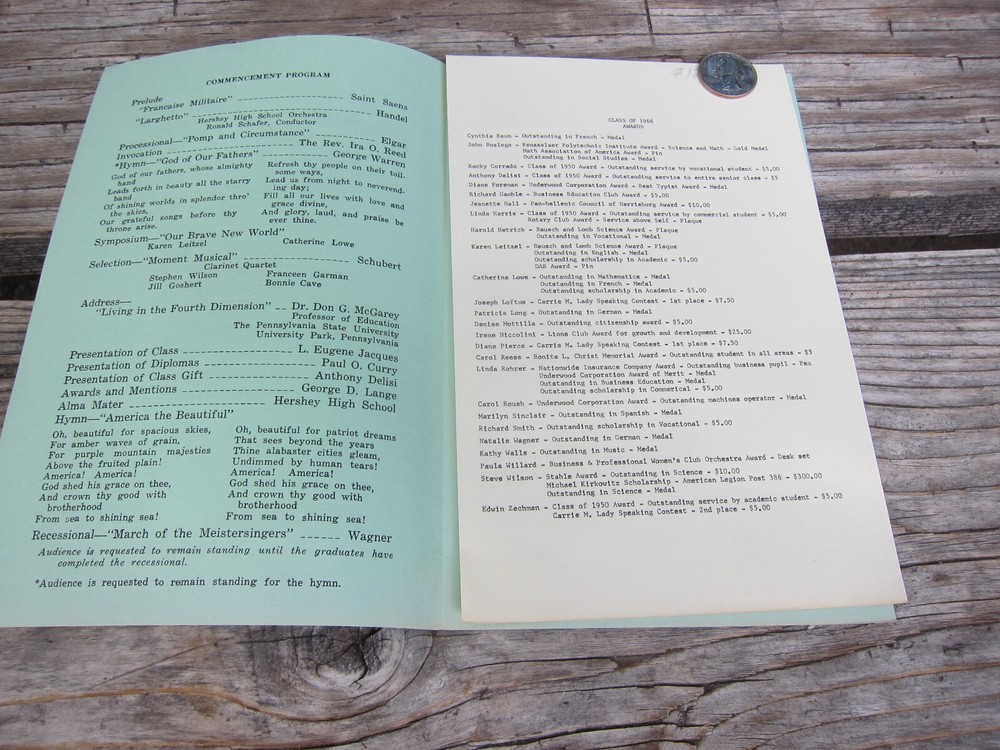 COMMENCEMENT PROGRAM
Prelude
"Francaise Militaire" Saint Saens
"Larghetto" Handel
Hershey High School Orchestra
Ronald Schafer, Conductor
Processional—"Pomp and Circumstance" Elgar
Invocation The Rev. Ira O. Reed
*Hymn—"God of Our Fathers" George Warren
God of our fathers, whose almighty
hand
Leads forth in beauty all the starry
band
Of shining worlds in splendor thro'
the skies,
Our grateful songs before thy
throne arise.
Refresh thy people on their toil-
some ways,
Lead us from night to neverend-
ing day;
Fill all our lives with love and
grace divine,
And glory, laud, and praise be
ever thine.
Symposium—"Our Brave New World"
Karen Leitzel Catherine Lowe
Selection—"Moment Musical" Schubert
Clarinet Quartet
Stephen Wilson Franceen Garman
Jill Goshert Bonnie Cave
Address—
"Living in the Fourth Dimension" Dr. Don G. McGarey
Professor of Education
The Pennsylvania State University
University Park, Pennsylvania
Presentation of Class L. Eugene Jacques
Presentation of Diplomas Paul O. Curry
Presentation of Class Gift Anthony Delisi
Awards and Mentions George D. Lange
Alma Mater Hershey High School
Hymn—"America the Beautiful"
Oh, beautiful for spacious skies,
For amber waves of grain,
For purple mountain majesties
Above the fruited plain!
America! America!
God shed his grace on thee,
And crown thy good with
brotherhood
From sea to shining sea!
Oh, beautiful for patriot dreams
That sees beyond the years
Thine alabaster cities gleam,
Undimmed by human tears!
America! America!
God shed his grace on thee,
And crown thy good with
brotherhood
From sea to shining sea!
Recessional—"March of the Meistersingers" Wagner
Audience is requested to remain standing until the graduates have
completed the recessional.
*Audience is requested to remain standing for the hymn.
CLASS OF 1966
AWARDS
Cynthia Baum - Outstanding in French - Medal
John Boslego - Rensselaer Polytechnic Institute Award - Science and Math - Gold Medal
Math Association of America Award - Pin
Outstanding in Social Studies - Medal
Rocky Corrado - Class of 1950 Award - Outstanding service by vocational student - $5.00
Anthony Delisi - Class of 1950 Award - Outstanding service to entire senior class - $5
Diane Foreman - Underwood Corporation Award - Best Typist Award - Medal
Richard Gauble - Business Education Club Award - $5.00
Jeanette Hall - Pan-hellenic Council of Harrisburg Award - $10.00
Linda Harris - Class of 1950 Award - Outstanding service by commercial student - $5.00
Rotary Club Award - Service above Self - Plaque
Harold Hetrick - Bausch and Lomb Science Award - Plaque
Outstanding in Vocational - Medal
Karen Leitzel - Bausch and Lomb Science Award - Plaque
Outstanding in English - Medal
Outstanding scholarship in Academic - $5.00
DAR Award - Pin
Catherine Lowe - Outstanding in Mathematics - Medal
Outstanding in French - Medal
Outstanding scholarship in Academic - $5.00
Joseph Loftus - Carrie M. Lady Speaking Contest - 1st place - $7.50
Patricia Long - Outstanding in German - Medal
Denise Mottilla - Outstanding citizenship award - $5.00
Irene Niccolini - Lions Club Award for growth and development - $25.00
Diane Pierce - Carrie M. Lady Speaking Contest - 1st place - $7.50
Carol Reese - Bonita L. Christ Memorial Award - Outstanding student in all areas - $5
Linda Rohrer - Nationwide Insurance Company Award - Outstanding business pupil - Pen
Underwood Corporation Award of Merit - Medal
Outstanding in Business Education - Medal
Outstanding scholarship in Commerical - $5.00
Carol Roush - Underwood Corporation Award - Outstanding machines operator - Medal
Marilyn Sinclair - Outstanding in Spanish - Medal
Richard Smith - Outstanding scholarship in Vocational - $5.00
Natalie Wagner - Outstanding in German - Medal
Kathy Walls - Outstanding in Music - Medal
Paula Willard - Business & Professional Women's Club Orchestra Award - Desk set
Steve Wilson - Stahle Award - Outstanding in Science - $10.00
Michael Kirkowitz Scholarship - American Legion Post 386 - $300.00
Outstanding in Science - Medal
Edwin Zechman - Class of 1950 Award - Outstanding service by academic student - $5.00
Carrie M. Lady Speaking Contest - 2nd place - $5.00